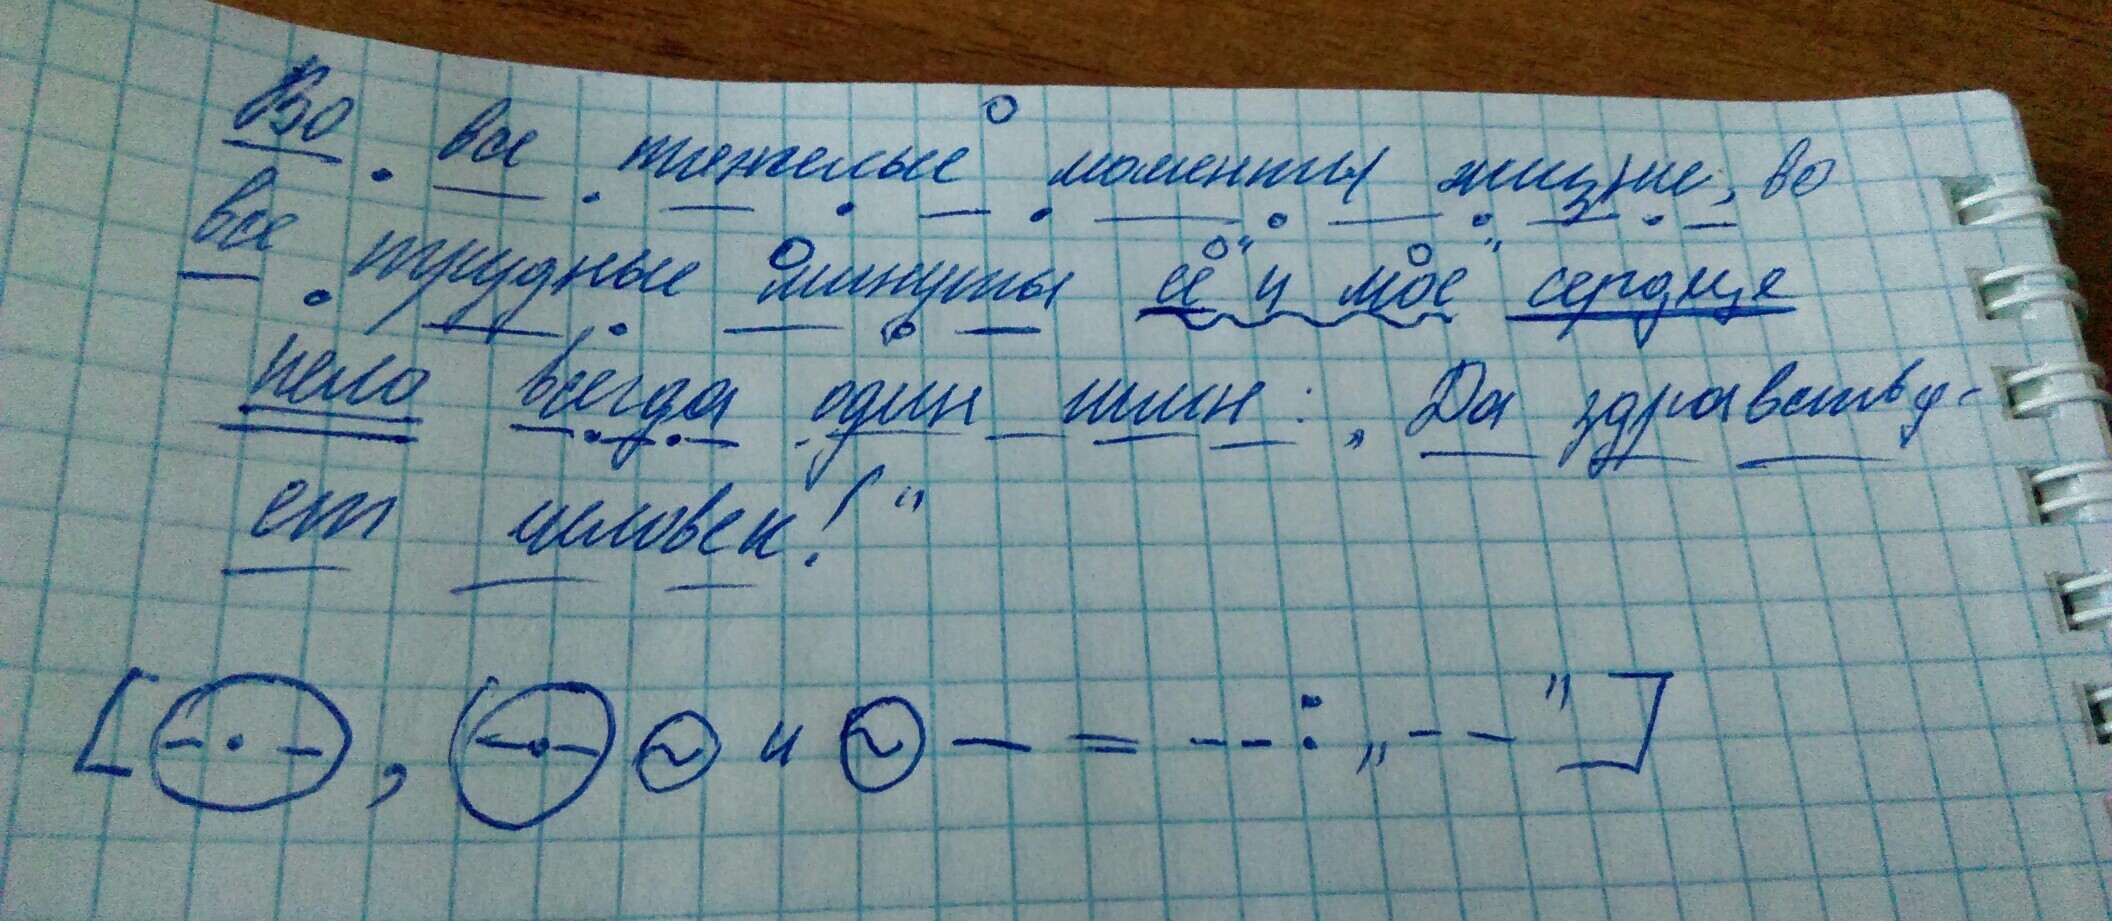 Во все тяжелые моменты жизни, во
все трудные минуты её и моё сердце
пело всегда один гимн: „Да здравству-
ет человек!“
[(-·-), (-·-) (~) и (~) — = -- : „--”]